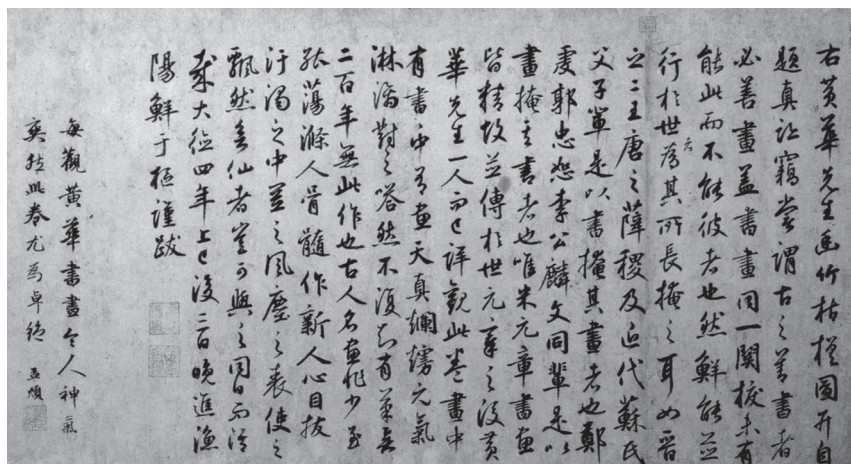 右黄華先生画竹枯槎圖并自
題真迹竊嘗謂古之善書者
必善畫盖書畫同一関捩未有
能此而不能彼者也然鮮能並
行於世者為其所長掩之耳如晋
之二王唐之薛稷及近代蘇氏
父子輩是以書掩其畫者也鄭
虔郭忠恕李公麟文同輩是以
畫掩其書者也唯米元章書画
皆精故並傳於世元章之後黄
華先生一人而已詳觀此卷畫中
有書書中有畫天真爛熳元氣
淋漓對之嗒然不復知有筆矣
二百年無此作也古人名画非少至
能蕩滌人骨髓作新人心目拔
汙濁之中置之風塵之表使之
飄然欲仙者豈可與之同日而語
哉大德四年上巳後二日晚進漁
陽鮮于樞謹跋
每觀黄華書畫令人神氣
爽然此卷尤為卓絶 孟頫